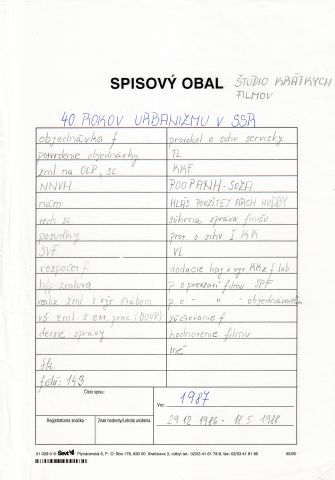 SPISOVÝ OBAL ŠTÚDIO KRÁTKYCH
FILMOV
40 ROKOV URBANIZMU V SSR
objednávka f protokol o schv servisky
potvrdenie objednávky TL
zml na OLP, sc KKF
NNVH POOPANH-SOZA
nám HLÁS POUŽITEJ ARCH HUDBY
tech sc súhrnná správa
posudky prot. o schv I KK
SVF VL
rozpočet f dodacie listy o výr KK z f lab
h/p zmluva p o prevzatí filmu SPF
realiz zml s výr štábom p. o - " - objednávateľom
vš zml s ex. prac (DOVP) zúčtovanie f
denné správy hodnotenie filmu
iné
šk.
fólií: 143
Číslo spisu:
Vec: 1987
Registratúrna značka Znak hodnoty/Lehota uloženia 29 12 1986 - 18 5 1988
01 029 0 0 Ševt Plynárenská 6, P. O. Box 179, 830 00 Bratislava 3, odbyt tel.: 02/53 41 61 78-9, fax: 02/53 41 61 80